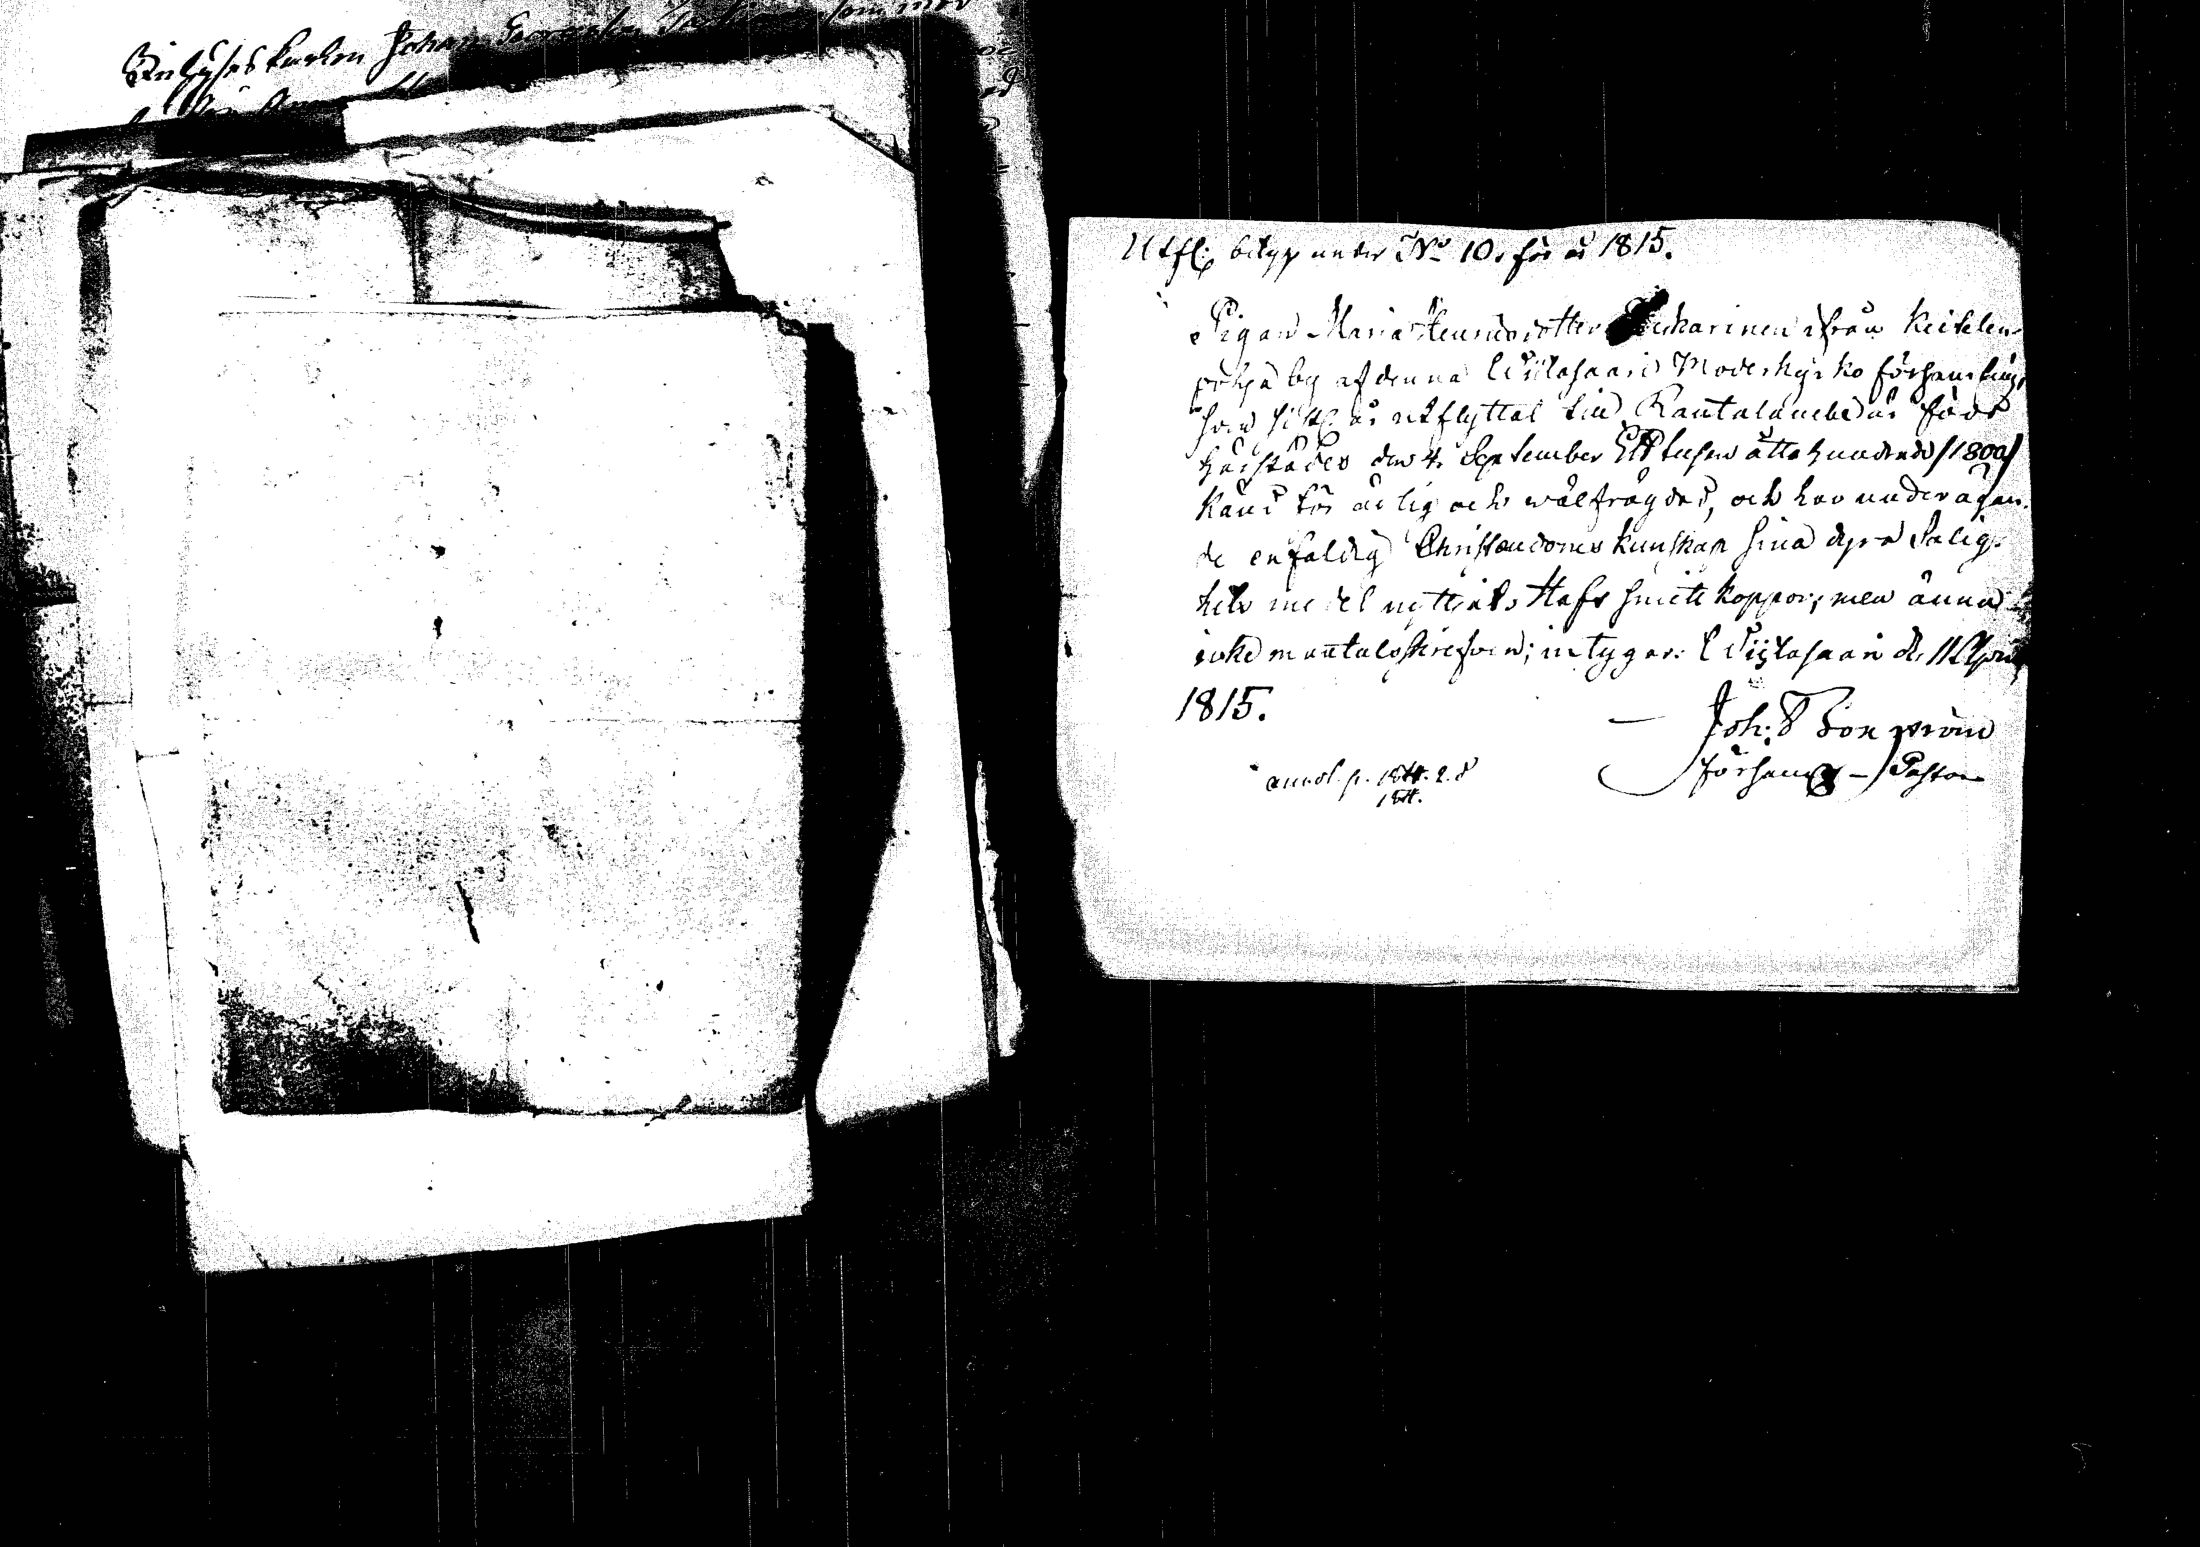 Inhyses karlen Johan som med
Utfl: betyg under No 10. för år 1815.
Pigan Maria Henricsdotter Tuckarinen ifrån Keitelen
pohja by af denna Wiitasaari Moderkyrko församling,
som sistl. år utflyttat till Rautalambi är född
härstädes den 4. September Ett tusen åtta hundrade /1800/
känd för ärlig och wälfrägdad, och har under ägan-
de enfaldig Christendoms kunskap sina dyra Salig-
hets medel nyttjat. Haft smitt koppor; men ännu
icke mantalsskrefven; intygar. Wiitasaari d. 11 April
1815.
Joh:
Församl: Pastor
annot. p.